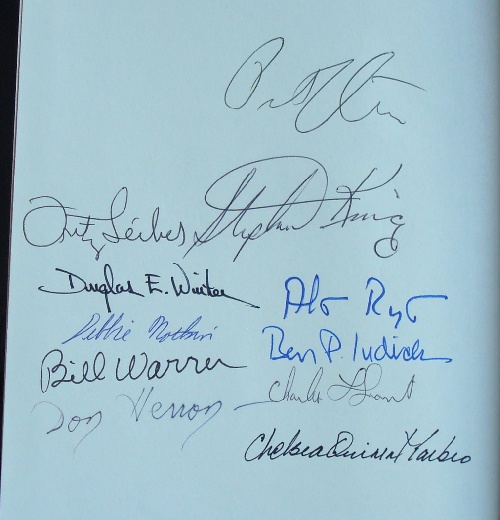 Fritz Leiber Stephen King
Douglas E. Winter
Alan Ryan
Debbie Notkin
Ben P. Indick
Bill Warren
Charles L. Grant
Don Herron
Chelsea Quinn Yarbro